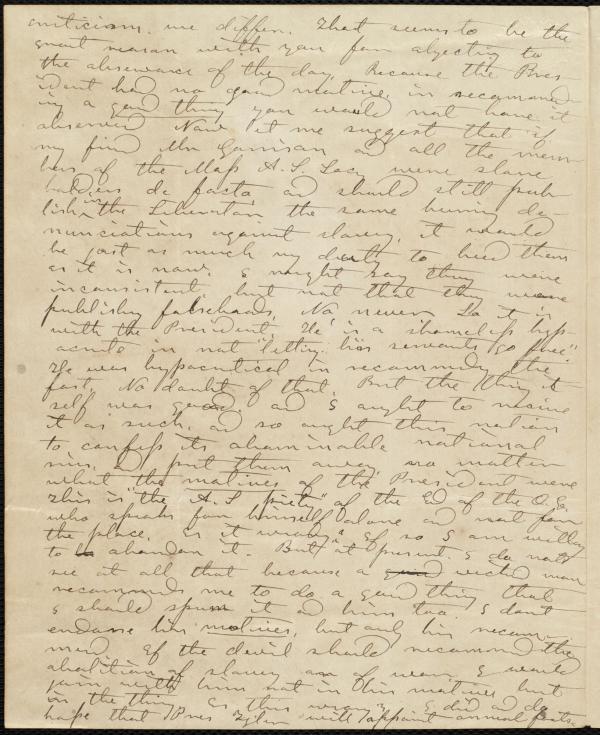 criticism. we differ. That seems to be the
great reason with you for objecting to
the observance of the day, Because the Pres-
ident had no good motive, in recommend-
ing a good thing you would not have it
observed Now let me suggest that if
my friend Mr Garrison and all the mem-
bers of the Mass A. S. Socy were slave
holders de facto and should still pub-
lish in the Liberator the same burning de-
nunciations against slavery, it would
be just as much my duty to heed them
as it is now. I might say they were
inconsistent, but not that they were
publishing falsehoods, No never So it is
with the President He is a shameless hyp-
ocrite in not "letting his servants go free".
He was hypocritical in recommending the
fast. No doubt of that. But the thing it-
self was good. and I ought to receive
it as such, and so ought this nation
to confess its abominable national
sins, and put them away, no matter
what the motives of the President were
This is "the A. S. piety" of the Ed of the O. G.
who speaks for himself alone and not for
the place. Is it wrong? If so I am willing
to abandon it. But at present I do not
see at all that because a wicked man
recommends me to do a good thing that
I should spurn it and him too. I don't
endorse his motives, but only his recom-
mend. If the devil should recommend the
abolition of slavery or of war, I would
join with him not in his motives but
in the thing. Is this wrong? I did and do
hope that Pres Tyler will appoint annual fasts